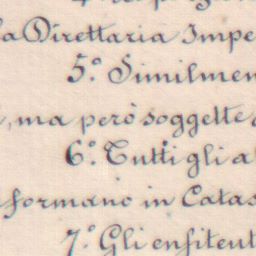 a Direttaria Impe
5.° Similmen
, ma però soggette
6.° Tutti gli a
formano in Catas
7.° Gli enfitent